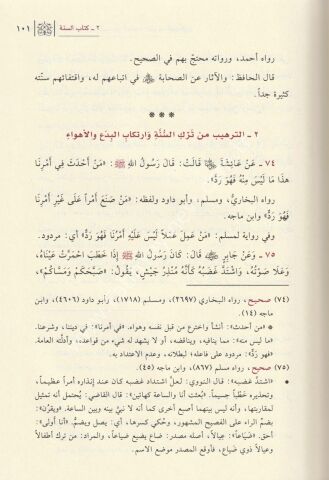 ٢ ـ كتاب السنة
١٠١
رواه أحمد، ورواته محتجّ بهم في الصحيح.
قال الحافظ: والآثار عن الصحابة ﷺ في اتباعهم له، واقتفائهم سنّته
كثيرة جداً.
* * *
٢ ـ الترهيب من تَرْكِ السُّنَّةِ وَارتكابِ البِدَعِ والأهواءِ
٧٤ ـ عَنْ عَائِشَةَ قَالَتْ: قَالَ رَسُولُ اللَّهِ ﷺ: «مَنْ أَحْدَثَ فِي أَمْرِنَا
هذَا مَا لَيْسَ مِنْهُ فَهُوَ رَدٌّ».
رواه البخاريُّ، ومسلم، وأبو داود ولفظه: «مَنْ صَنَعَ أَمْراً عَلَى غَيْرِ أَمْرِنَا
فَهُوَ رَدٌّ» وابن ماجه.
وفي رواية لمسلم: «مَنْ عَمِلَ عَمَلاً لَيْسَ عَلَيْهِ أَمْرُنَا فَهُوَ رَدٌّ»؛ أي: مردود.
٧٥ ـ وَعَنْ جَابِرٍ قَالَ: كَانَ رَسُولُ اللَّهِ ﷺ إِذَا خَطَبَ احْمَرَّتْ عَيْنَاهُ،
وَعَلَا صَوْتُهُ، وَاشْتَدَّ غَضَبُهُ كَأَنَّهُ مُنْذِرُ جَيْشٍ، يَقُولُ: «صَبَّحَكُمْ وَمَسَّاكُمْ»،
(٧٤) صحيح، رواه البخاري (٢٦٩٧)، ومسلم (١٧١٨)، وأبو داود (٤٦٠٦)، وابن
ماجه (١٤).
* «من أحدث»: أنشأ واخترع من قبل نفسه وهواه. «في أمرنا»: في ديننا، وشرعنا.
«ما ليس منه»: مما ينافيه، ويناقضه، أو لا يشهد له شيء من قواعده، وأدلّته العامة.
«فهو ردّ»: مردود على فاعله؛ لبطلانه، وعدم الاعتداد به.
(٧٥) صحيح، رواه مسلم (٨٦٧)، وابن ماجه (٤٥).
* «اشتدّ غضبه»: قال النووي: لعلّ اشتداد غضبه كان عند إنذاره أمراً عظيماً،
وتحذيره خَطْباً جسيماً. «بُعثت أنا والساعة كهاتين»: قال القاضي: يُحتمل أنه تمثيل
لمقاربتها، وأنه ليس بينهما أصبع أخرى كما أنه لا نبيّ بينه وبين الساعة. «ويقرُن»:
بضمّ الراء على الفصيح المشهور، وحُكي كسرها، أي: يصل ويضمّ. «أنا أَوْلى»:
أحق. «ضَياعاً»: عيالاً، أصله مصدر: ضاع يضيع ضياعاً، والمراد: من ترك أطفالاً
وعيالاً ذوي ضياع، فأوقع المصدر موضع الاسم.